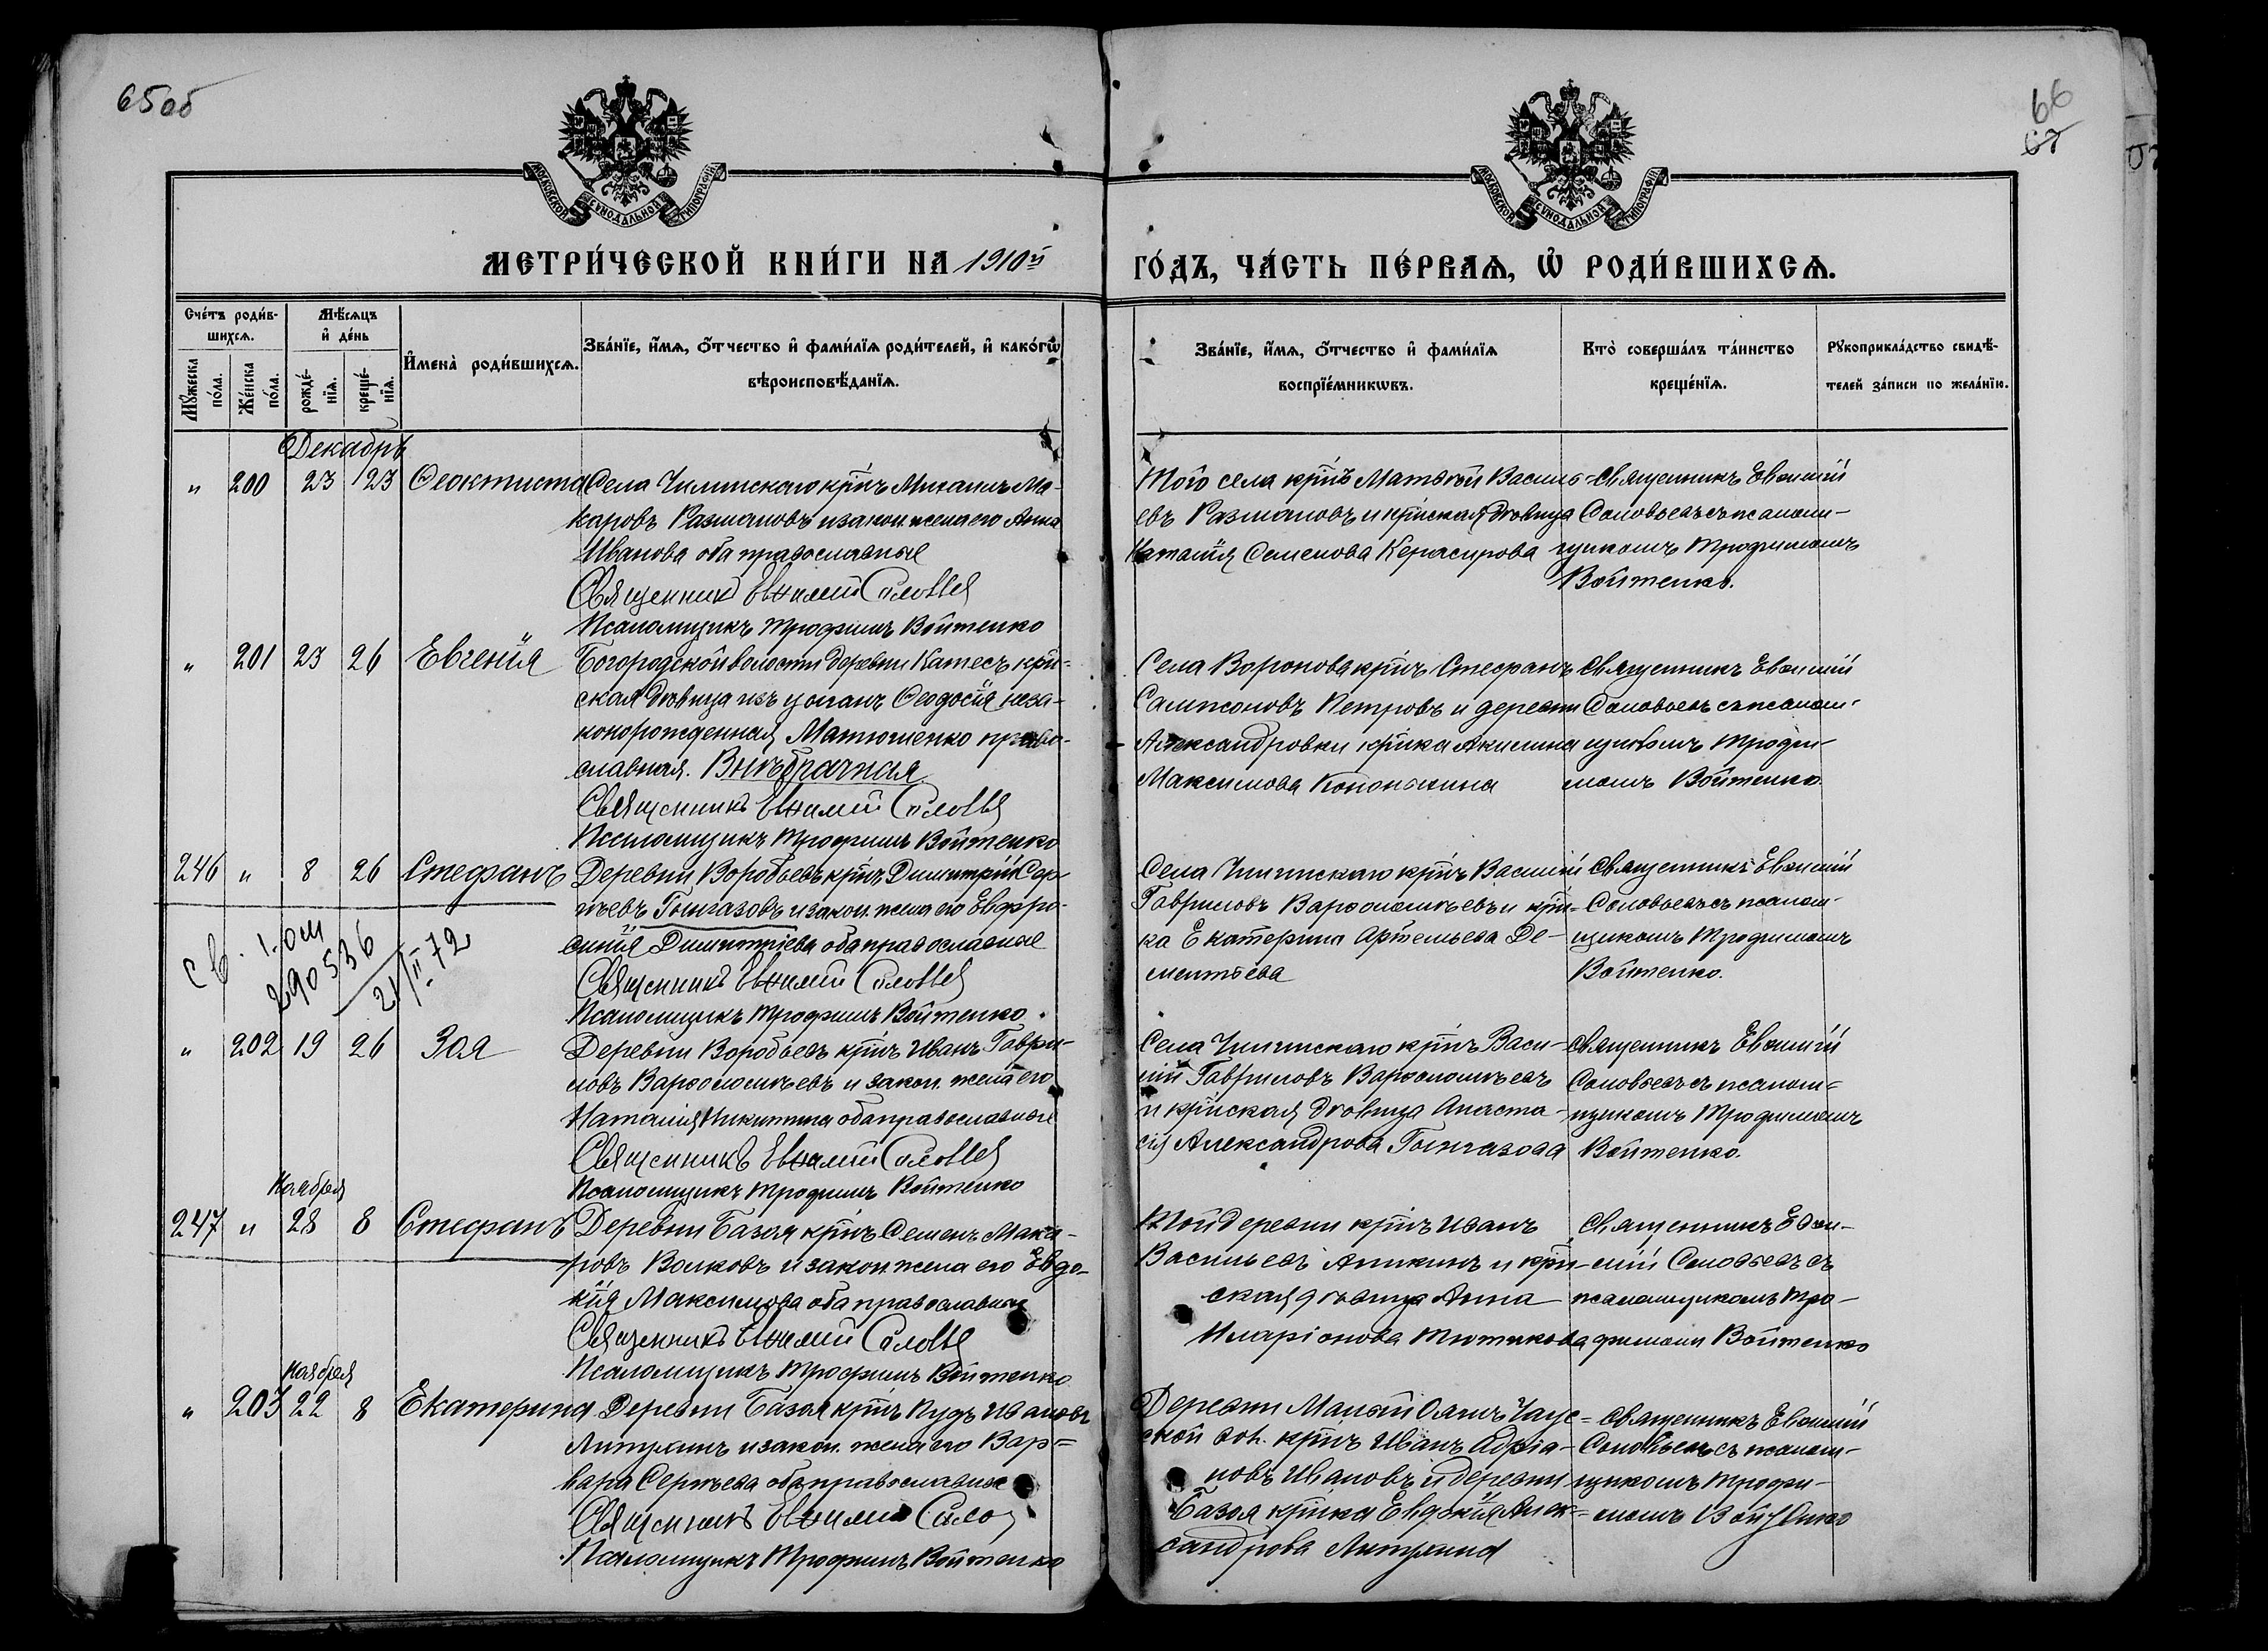 65 об
66
67
МОСКОВСКОЙ СУНОДАЛЬНОЙ ТИПОГРАФІИ
МОСКОВСКОЙ СУНОДАЛЬНОЙ ТИПОГРАФІИ
МЕТРИ́ЧЕСКОЙ КНИ́ГИ НА 1910й
ГО́ДЪ, ЧА́СТЬ ПЕ́РВАѦ, Ѡ҆ РОДИ́ВШИХСѦ.
Сче́тъ роди́в-
шихсѧ.
Мѣ́сѧцъ
и҆ де́нь
Му́жеска по́ла.
Же́нска по́ла.
рожде́-
нїѧ.
креще́-
нїѧ.
И҆мена̀ роди́вшихсѧ.
Зва́нїе, и҆́мѧ, ѻ҆́тчество и҆ фами́лїѧ роди́телей, и҆ како́гѡ
вѣроисповѣ́данїѧ.
Зва́нїе, и҆́мѧ, ѻ҆́тчество и҆ фами́лїѧ
воспрїе́мникѡвъ.
Кто̀ соверша́лъ та́инство
креще́нїѧ.
Рꙋкоприкла́дство свидѣ́-
телей за́писи по жела́нїю.
Декабрь
" 200 23 23 Ѳеоктиста
Села Чилинскаго кр̃нъ Михаилъ Ма-
каровъ Размановъ и закон. жена его Анна
Иванова оба православные
Священникъ Евѳимій Соловьев
Псаломщикъ Трофимъ Войтенко
Того села кр̃нъ Матвѣй Василь-
евъ Размановъ и кр̃нская дѣвица
Наталія Семенова Керасирова
Священникъ Евѳимій
Соловьевъ съ псалом-
щикомъ Трофимомъ
Войтенко.
" 201 23 26 Евгенія
Богородской волости деревни Катесъ кр̃н-
ская дѣвица изъ цыганъ Ѳеодосія неза-
конорожденная Матюшенко право-
славная. Внѣбрачная
Священникъ Евѳимій Соловьев
Псаломщикъ Трофимъ Войтенко
Села Воронова кр̃нъ Стефанъ
Сампсоновъ Петровъ и деревни
Александровки кр̃нка Акилина
Максимова Кононыхина
Священникъ Евѳимій
Соловьевъ съ псалом-
щикомъ Трофи-
момъ Войтенко.
246 " 8 26 Стефанъ
Деревни Воробьевъ кр̃нъ Димитрій Сер-
гѣевъ Гынгазовъ и закон. жена его Евфро-
синія Димитріева оба православные
Священникъ Евѳимій Соловьев
Псаломщикъ Трофимъ Войтенко.
Села Чилинскаго кр̃нъ Василій
Гавриловъ Варѳоломѣевъ и кр̃н-
ка Екатерина Артемьева Де-
ментьева
Священникъ Евѳимій
Соловьевъ съ псалом-
щикомъ Трофимомъ
Войтенко.
св. I-ОМ
290536
21/II-72
" 202 19 26 Зоя
Деревни Воробьевъ кр̃нъ Иванъ Гаври-
ловъ Варѳоломѣевъ и закон. жена его
Наталія Никитина оба православные
Священникъ Евѳимій Соловьев
Псаломщикъ Трофимъ Войтенко
Села Чилинскаго кр̃нъ Васи-
лій Гавриловъ Варѳоломѣевъ
и кр̃нская дѣвица Анаста-
сія Александрова Гынгазова
Священникъ Евѳимій
Соловьевъ съ псалом-
щикомъ Трофимомъ
Войтенко.
Ноября
247 " 28 8 Стефанъ
Деревни Базоя кр̃нъ Семенъ Мака-
ровъ Волковъ и закон. жена его Евдо-
кія Максимова оба православные
Священникъ Евѳимій Соловьев
Псаломщикъ Трофимъ Войтенко
Той деревни кр̃нъ Иванъ
Васильевъ Аникинъ и кр̃н-
ская дѣвица Анна
Иларіонова Тютикова
Священникъ Евѳи-
мій Соловьевъ съ
псаломщикомъ Тро-
фимомъ Войтенко
Ноября
" 203 22 8 Екатерина
Деревни Базоя кр̃нъ Кудъ Ивановъ
Литухинъ и закон. жена его Вар-
вара Сергѣева оба православные
Священникъ Евѳимій Соло
Псаломщикъ Трофимъ Войтенко
Деревни Малый Оялъ Чаус-
ской вол. кр̃нъ Иванъ Адріа-
новъ Ивановъ и деревни
Базоя кр̃нка Евдокія Алек-
сандрова Литухина
Священникъ Евѳимій
Соловьевъ съ псалом-
щикомъ Трофи-
момъ Войтенко